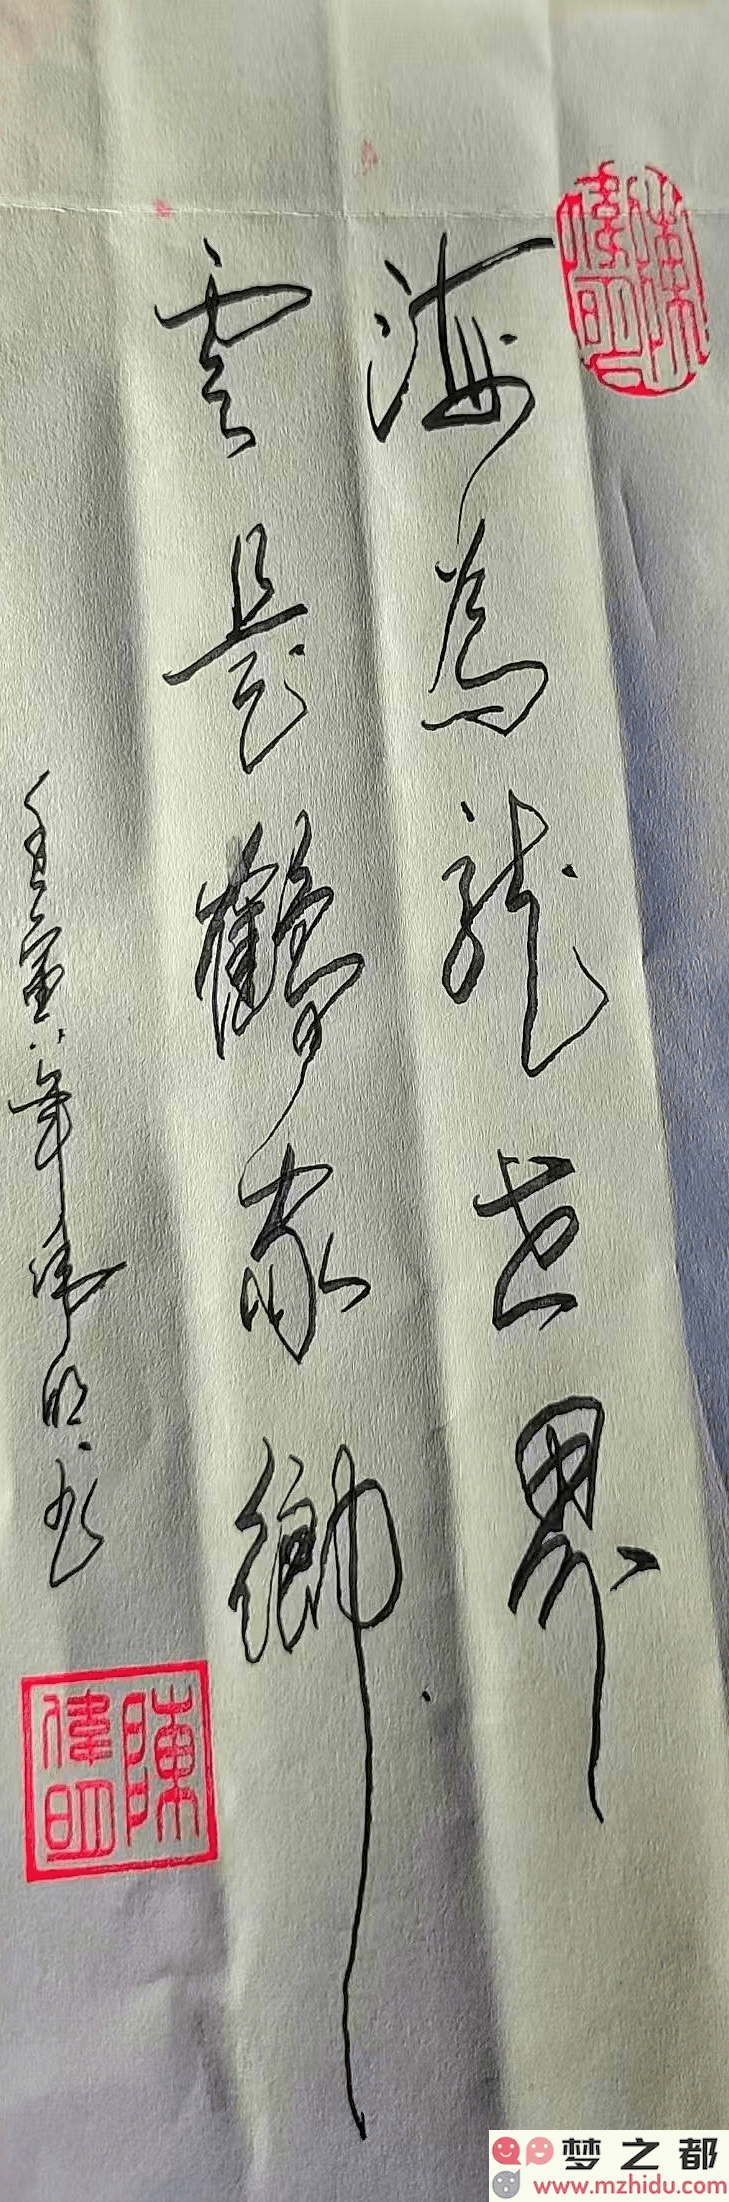 海為龍世界
雲是鶴家鄉
壬寅年偉明書
陳偉明
陳偉明
梦之都
www.mzhidu.com